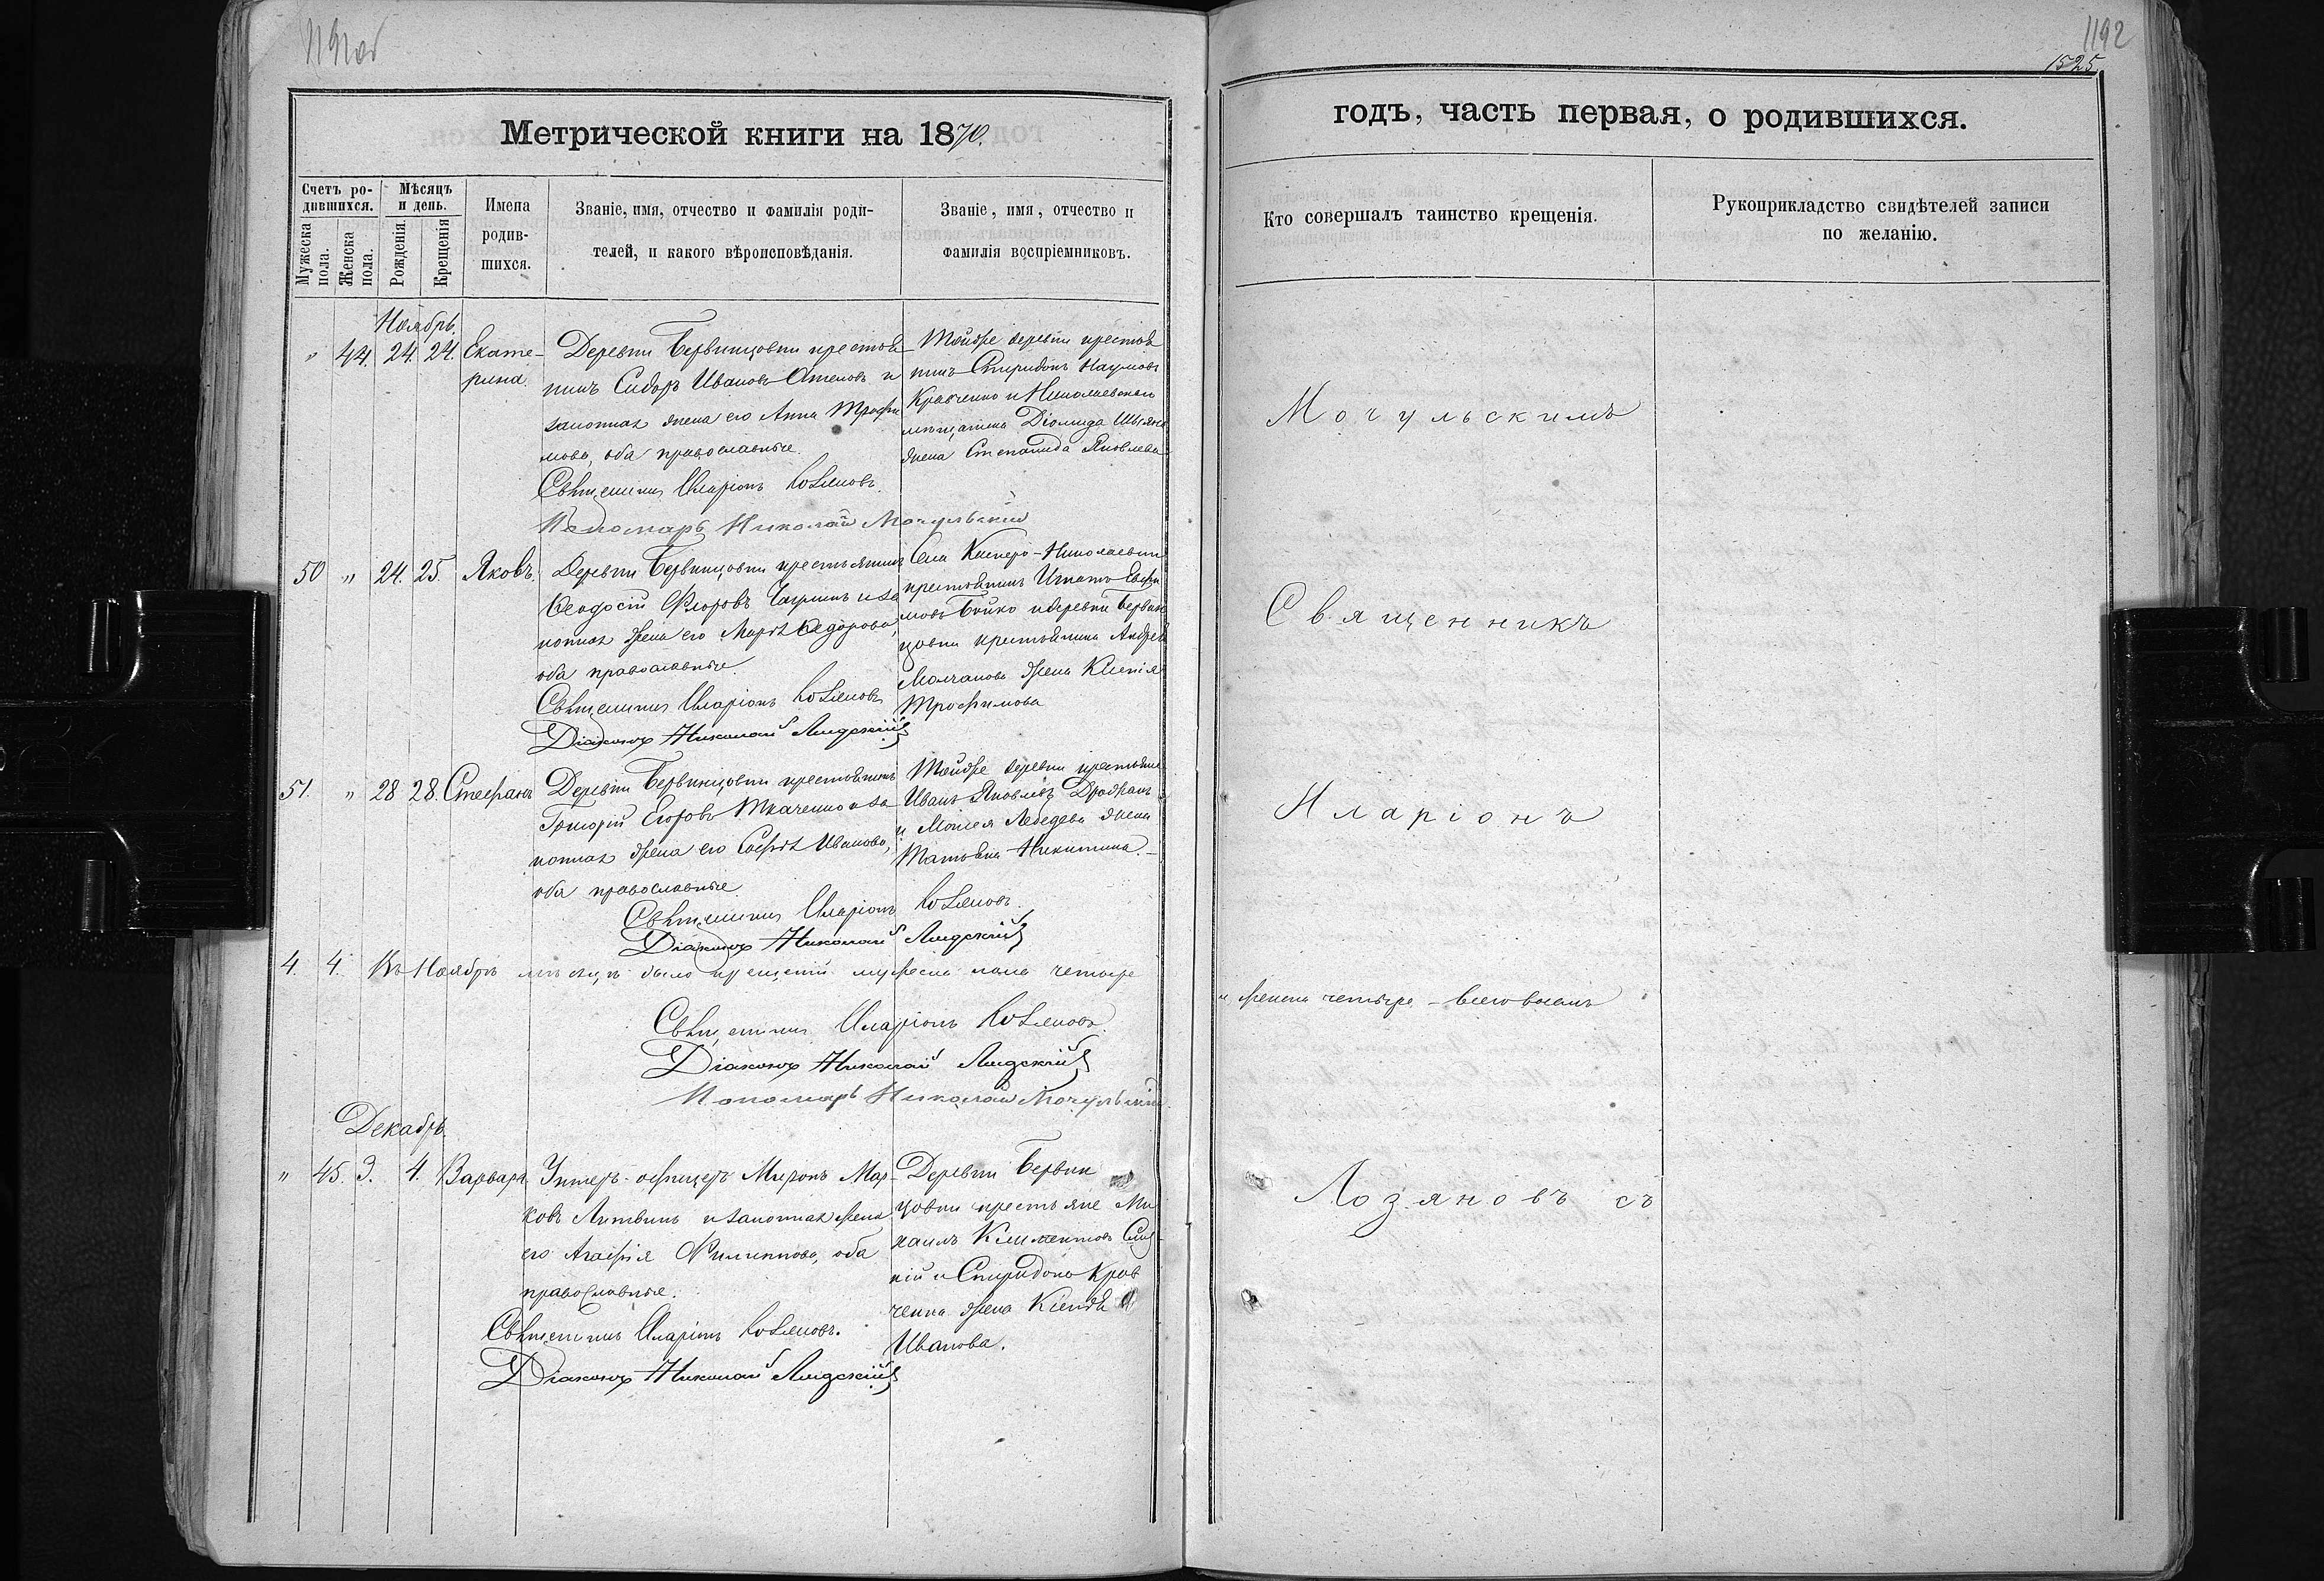 1191об
1192
1525.
Метрической книги на 1870.
годъ, часть первая, о родившихся.
Счетъ родившихся.
Мужеска пола.
Женска пола.
Мѣсяцъ и день.
Рожденія.
Крещенія
Имена родившихся.
Званіе, имя, отчество и фамилія родителей, и какого вѣроисповѣданія.
Званіе, имя, отчество и фамилія воспріемниковъ.
Кто совершалъ таинство крещенія.
Рукоприкладство свидѣтелей записи по желанію.
Ноябрь.
" 44. 24. 24. Екатерина.
Деревни Бервинцовки крестья
нинъ Сидоръ Ивановъ и
законная жена его Анна Трофи
мова, оба православные.
Священникъ Иларіонъ Лозяновъ.
Пономарь Николай Мочульскій
Тойже деревни крестья
нинъ Спиридонъ Наумовъ
Кравченко и Николаевскаго
мѣщанина Діомида
жена Степанида Яковлева
50 " 24. 25. Яковъ.
Деревни Бервинцовки крестьянинъ
Феодосій Флоровъ и за
конная жена его Марія Федорова,
оба православные.
Священникъ Иларіонъ Лозяновъ
Діаконъ Николай Лидскій
Села Касперо-Николаевки
крестьянинъ Игнатъ Евфи
мовъ Бойко и деревни Бервин
цовки крестьянина Андрея
Молчанова жена Ксенія
Трофимова
51. " 28 28. Стефанъ
Деревни Бервинцовки крестьянинъ
Григорій Егоровъ Ткаченко и за
конная жена его Софія Иванова,
оба православные
Священникъ Иларіонъ Лозяновъ.
Діаконъ Николай Лидскій
Тойже деревни крестьяне
Иванъ Яковлевъ
и Моисея Лебедева жена
Татьяна Никитина.
4. 4. Въ Ноябрѣ мѣсяцѣ было крещеній мужеска пола четыре
и женска четыре - всего восемь
Священникъ Иларіонъ Лозяновъ
Діаконъ Николай Лидскій
Пономарь Николай Мочульскій
Декабрь.
" 45. 3. 4. Варвара
Унтеръ-офицеръ Миронъ Мар
ковъ Литвинъ и законная жена
его Агафія Филиппова, оба
православные.
Священникъ Иларіонъ Лозяновъ.
Діаконъ Николай Лидскій
Деревни Бервин
цовки крестьяне Ми
хаилъ Климентовъ
и Спиридона Крав
ченка жена Ксенія
Иванова.
Мочульскимъ
Священникъ
Иларіонъ
Лозяновъ съ